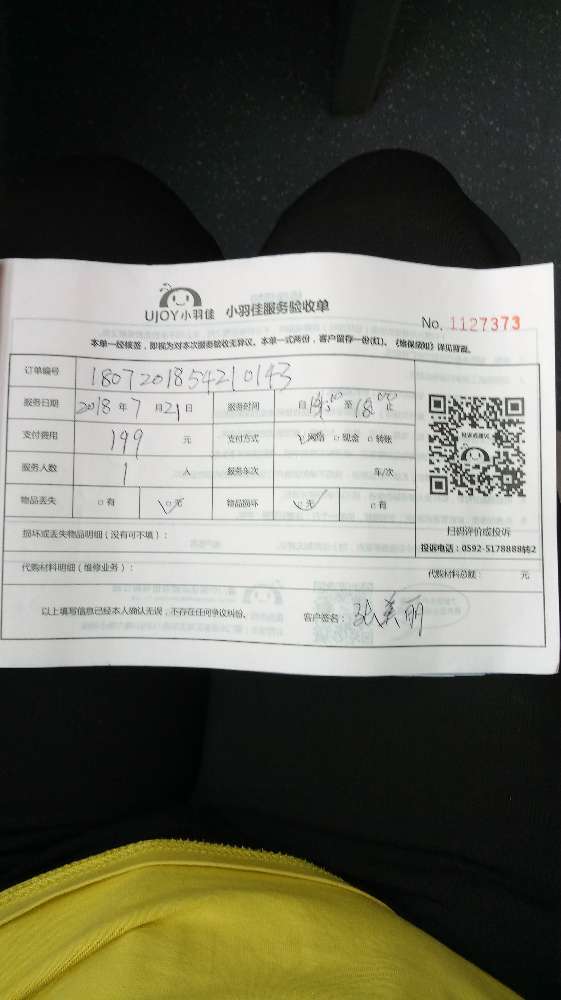 UJOY小羽佳 小羽佳服务验收单
No. 1127373
本单一经核签，即视为对本次服务验收无异议。本单一式两份，客户留存一份(红)。《维保须知》详见背面。
订单编号 1807201854210143
服务日期 2018 年 7 月 21 日 服务时间 自 至 18:00 止
支付费用 199 元 支付方式 网络 现金 转账
服务人数 1 人 服务车次 车/次
物品丢失 有 无 物品损坏 无 有
扫码评价或投诉
损坏或丢失物品明细（没有可不填）：
投诉电话：0592-5178888转2
代购材料明细（维修业务）： 代购材料总额： 元
以上填写信息已经本人确认无误，不存在任何争议纠纷。 客户签名： 张美丽